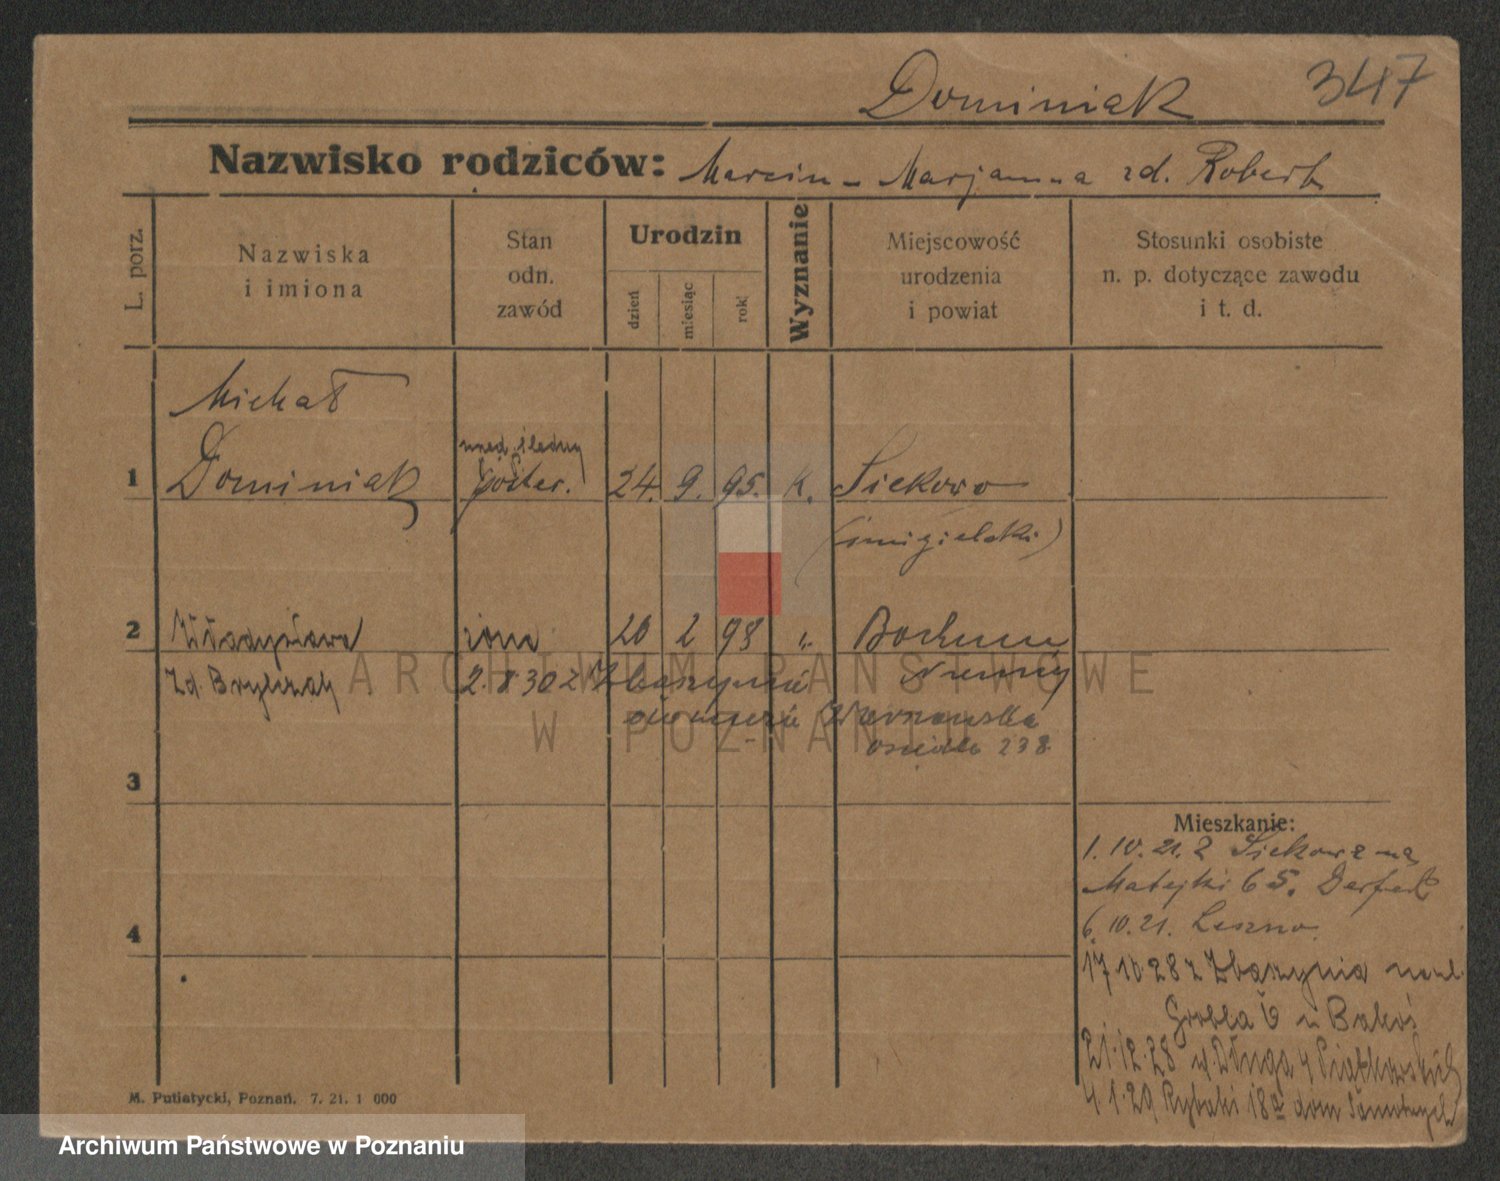 Dominiak 347
Nazwisko rodziców: Marcin - Marjanna zd. Robert
L. porz.
Nazwiska
i imiona
Stan
odn.
zawód
Urodzin
dzień
miesiąc
rok
Wyznanie
Miejscowość
urodzenia
i powiat
Stosunki osobiste
n. p. dotyczące zawodu
i t. d.
Michał
śledczy
1 Dominiak 24. 9. 95. K. Siekowo
(śmigielski)
2 Władysława żona 20 2 98 „ Bochum
zd. 2.8 30 z Zbąszynia Niemcy
osiedle 238
3
4
Mieszkanie:
1. 10. 21. z Siekowa na
Matejki 65.
6. 10. 21. Leszno
17 10 28 z Zbąszynia
Grobla 6 u Bakoś
21.12.28 Długa 4
4.1.29 Rybaki 18a dom
M. Putiatycki, Poznań. 7. 21. 1 000
ARCHIWUM PAŃSTWOWE
W POZNANIU
Archiwum Państwowe w Poznaniu